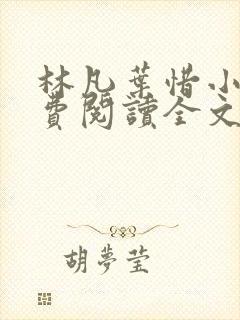 林凡葉惜小
費閱讀全文
胡夢瑩